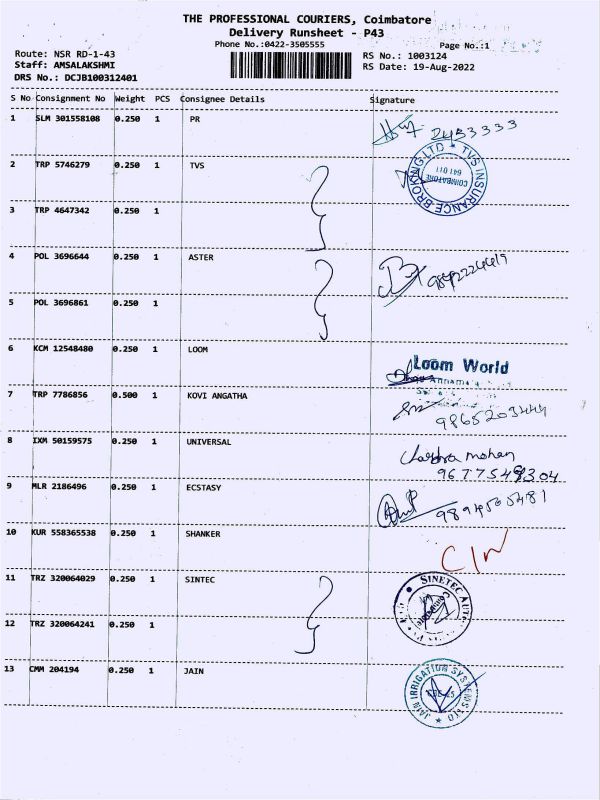 THE PROFESSIONAL COURIERS, Coimbatore
Delivery Runsheet - P43
Phone No.:0422-3505555
Page No.:1
Route: NSR RD-1-43
RS No.: 1003124
Staff: AMSALAKSHMI
RS Date: 19-Aug-2022
DRS No.: DCJB100312401
S No Consignment No Weight PCS Consignee Details Signature
1 SLM 301558108 0.250 1 PR
2433333
2 TRP 5746279 0.250 1 TVS
TVS INSURANCE BROKING LTD
COIMBATORE
641 011
3 TRP 4647342 0.250 1
4 POL 3696644 0.250 1 ASTER
9842224419
5 POL 3696861 0.250 1
6 KCM 12548480 0.250 1 LOOM
Loom World
7 TRP 7786856 0.500 1 KOVI ANGATHA
9865203444
8 IXM 50159575 0.250 1 UNIVERSAL
mohan
9 MLR 2186496 0.250 1 ECSTASY
10 KUR 558365538 0.250 1 SHANKER
11 TRZ 320064029 0.250 1 SINTEC
SINETEC AUTO
12 TRZ 320064241 0.250 1
13 CMM 204194 0.250 1 JAIN
JAIN IRRIGATION SYSTEMS LTD